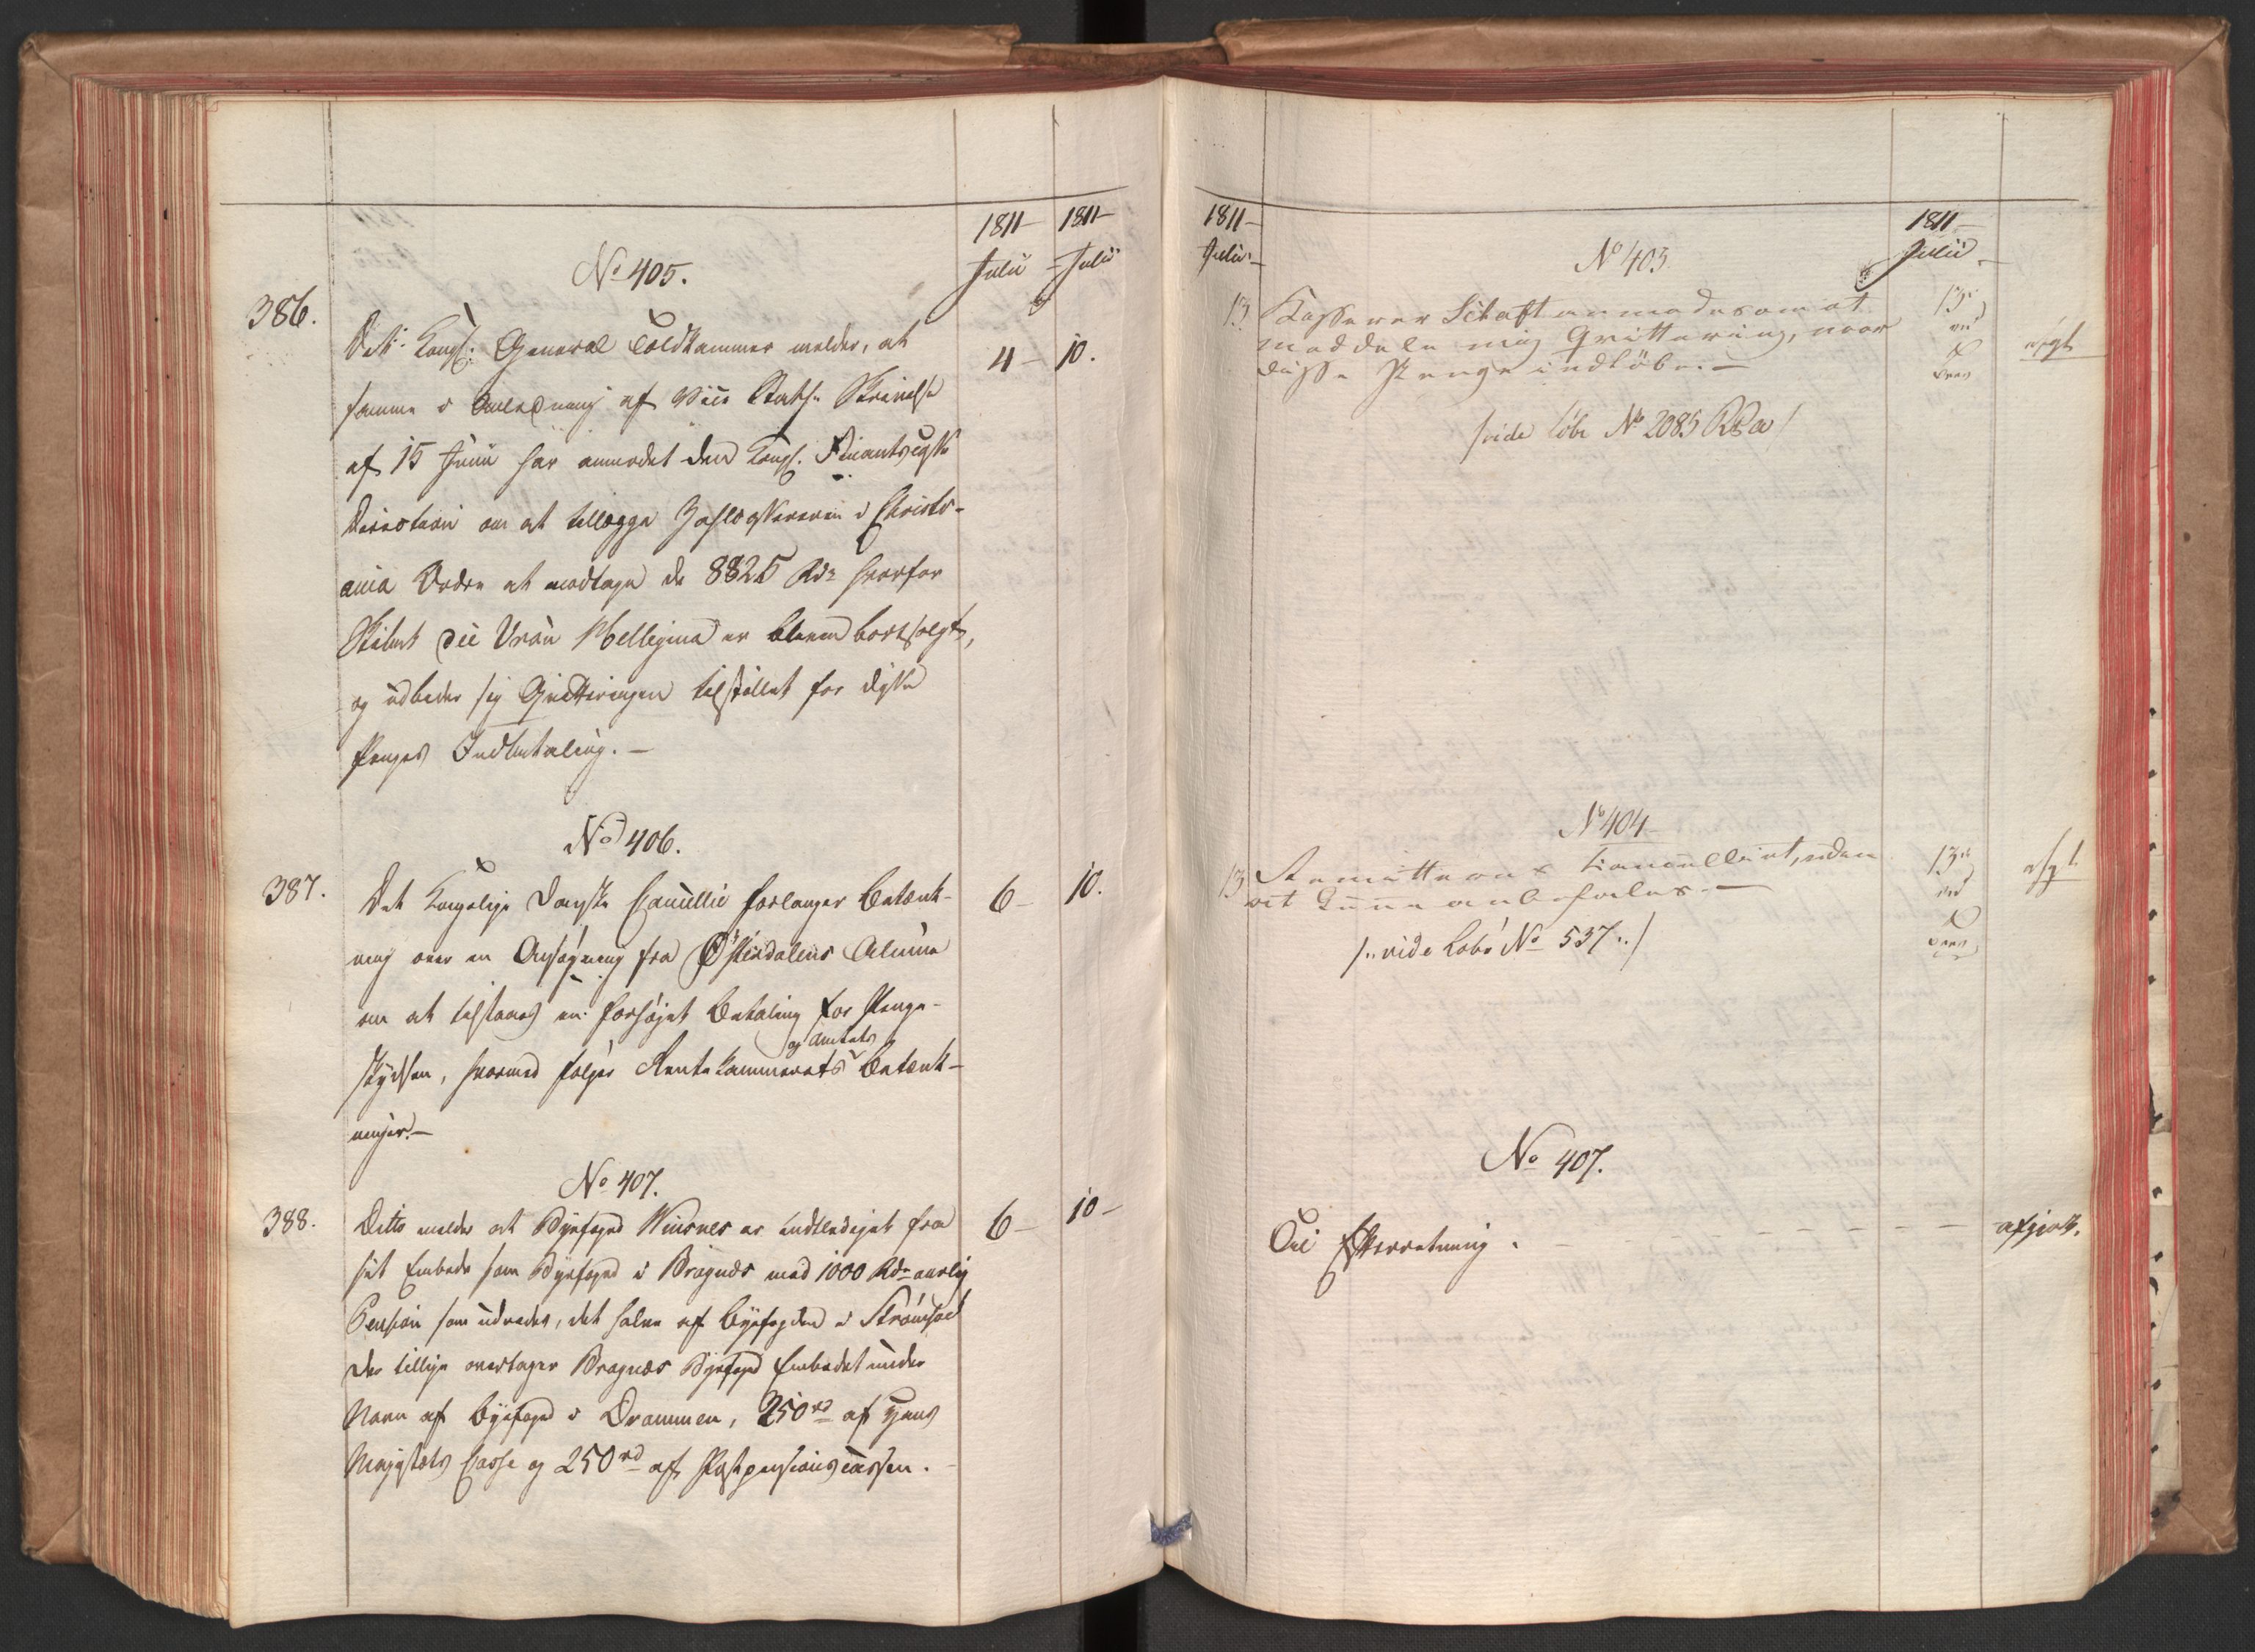 1811 - 1811 -
Julii - Julii
No 405.
386.
Det Kongl: General Toldkammer melder, at
4 - 10.
samme i Anledning af Vice Stath: Skrivelse
af 15 Junii har anmodet den Kongl. Finants
Direction om at tillægge Zahlkassereren i Christi-
ania Ordre at modtage de 8825 Rdr hvorfor
Skibet die Vrou Mellegina er bleven bortsolgt,
og udbeder sig Qvitteringen tilstillet for disse
Penges Indbetaling. -
No 406.
387.
Det Kongelige Danske Cancellie forlanger Betænk-
6 - 10.
ning over en Ansøgning fra Østerdalens Almue
om at tilstaaes en forhøjet Betaling for Penge-
og Amtets
skydsen, hvormed følger Rentekammerets Betænk-
ninger. -
No 407.
388.
Ditto melder at Byefoged Wiisnes er entlediget fra
6 - 10 -
sit Embede som Byefoged i Bragnæs med 1000 Rdr aarlig
Pension som udredes, det halve af Byefogden i Strømsøe
der tillige overtager Bragnæs Byefoged Embedet under
Navn af Byefoged i Drammen, 250 rd af Hans
Majestæts Casse og 250 rd af Postpensionscassen.
1811 -
Julii -
1811 -
Julii -
No 403.
13 Kasserer Schaft anmodes om at
13
meddele mig Qvittering, naar
disse Penge indløbe. -
exp
/vide Løbe No 2085 /
No 404
13 Remitteres Cancelliet, uden
13
exp
at kunne anbefales. -
/: vide Løbe No 537 :/
No 407.
Til Efterretning. - - - - -
afgjort.